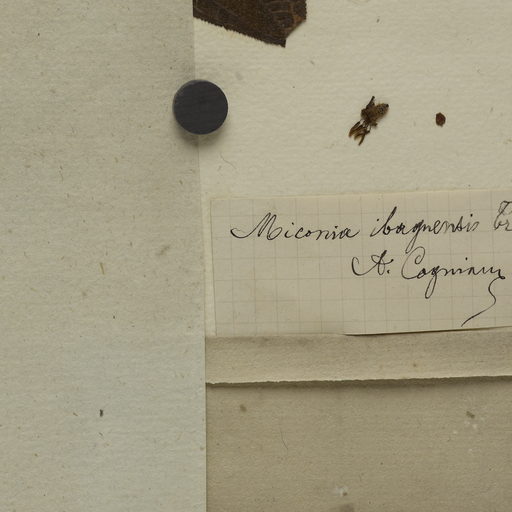 Miconia ibaguensis Tr
A. Cogniaux